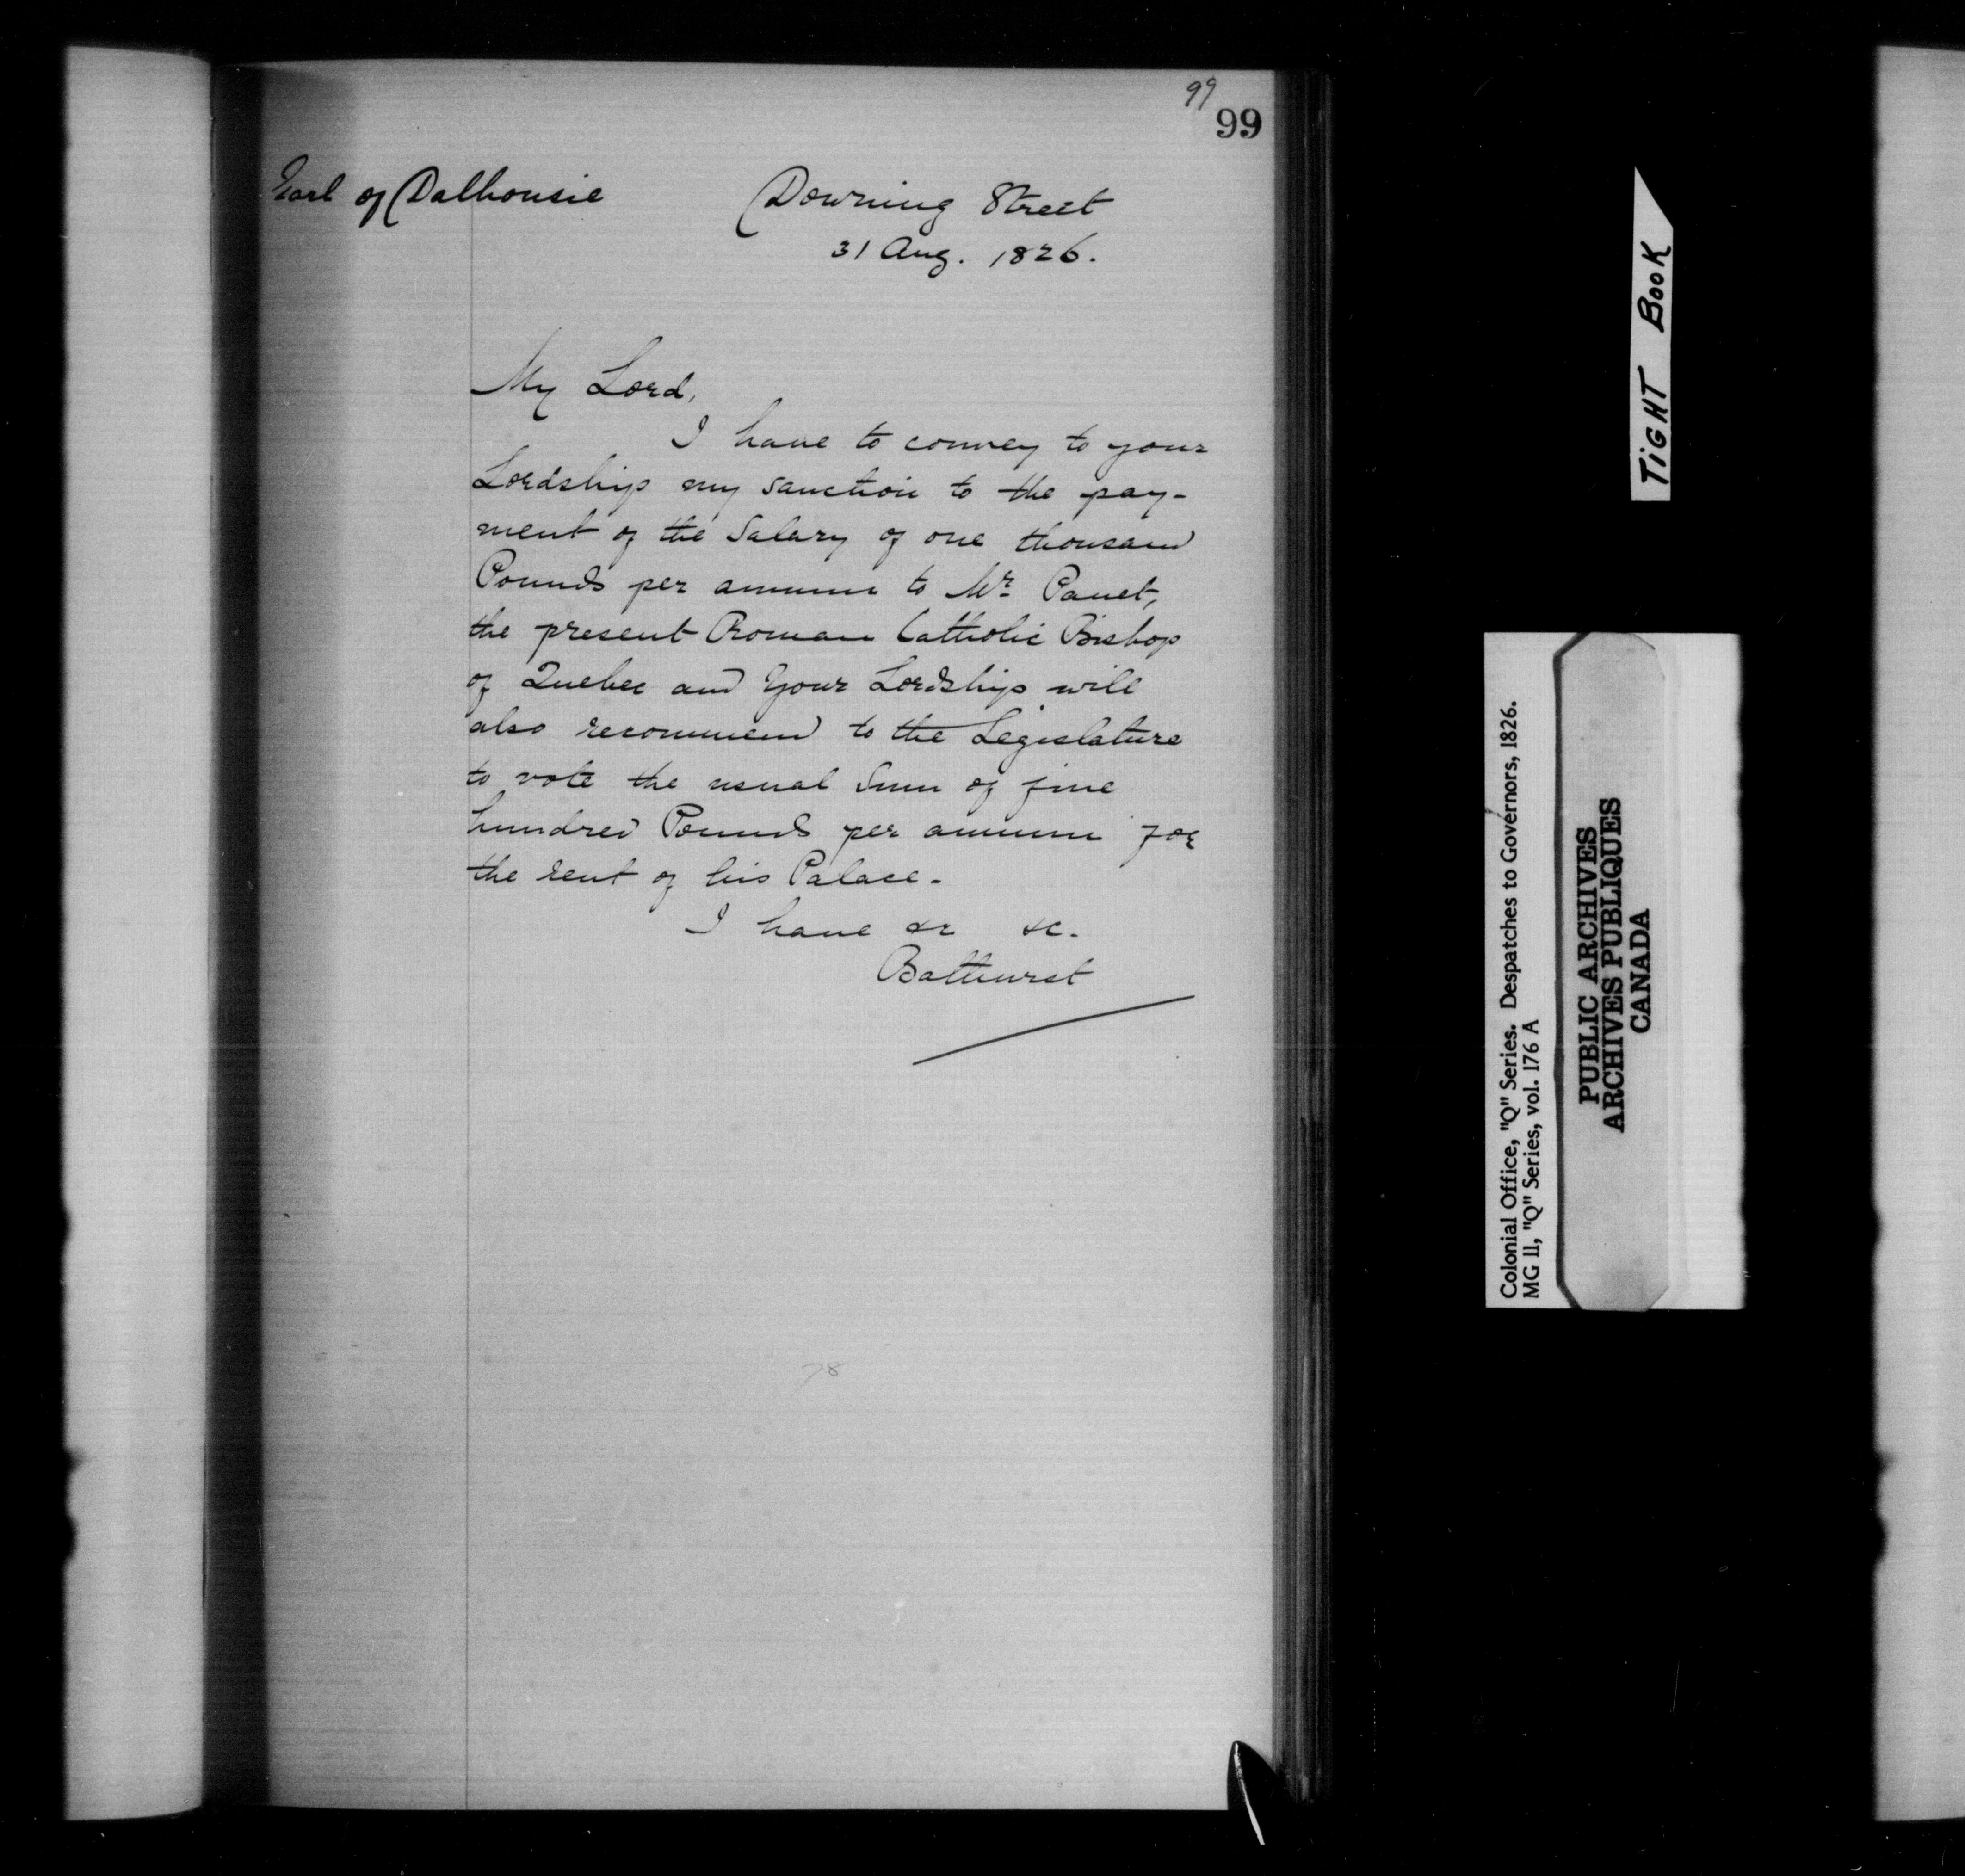 99
99
Earl of Dalhousie
Downing Street
31 Aug. 1826.
My Lord,
I have to convey to your
Lordship my sanction to the pay-
ment of the Salary of one thousand
Pounds per annum to Mr. Panet,
the present Roman Catholic Bishop
of Quebec and Your Lordship will
also recommend to the Legislature
to vote the usual Sum of five
hundred Pounds per annum for
the rent of his Palace.
I have &c &c.
Bathurst
78
TIGHT BOOK
Colonial Office, "Q" Series. Despatches to Governors, 1826.
MG 11, "Q" Series, vol. 176 A
PUBLIC ARCHIVES
ARCHIVES PUBLIQUES
CANADA